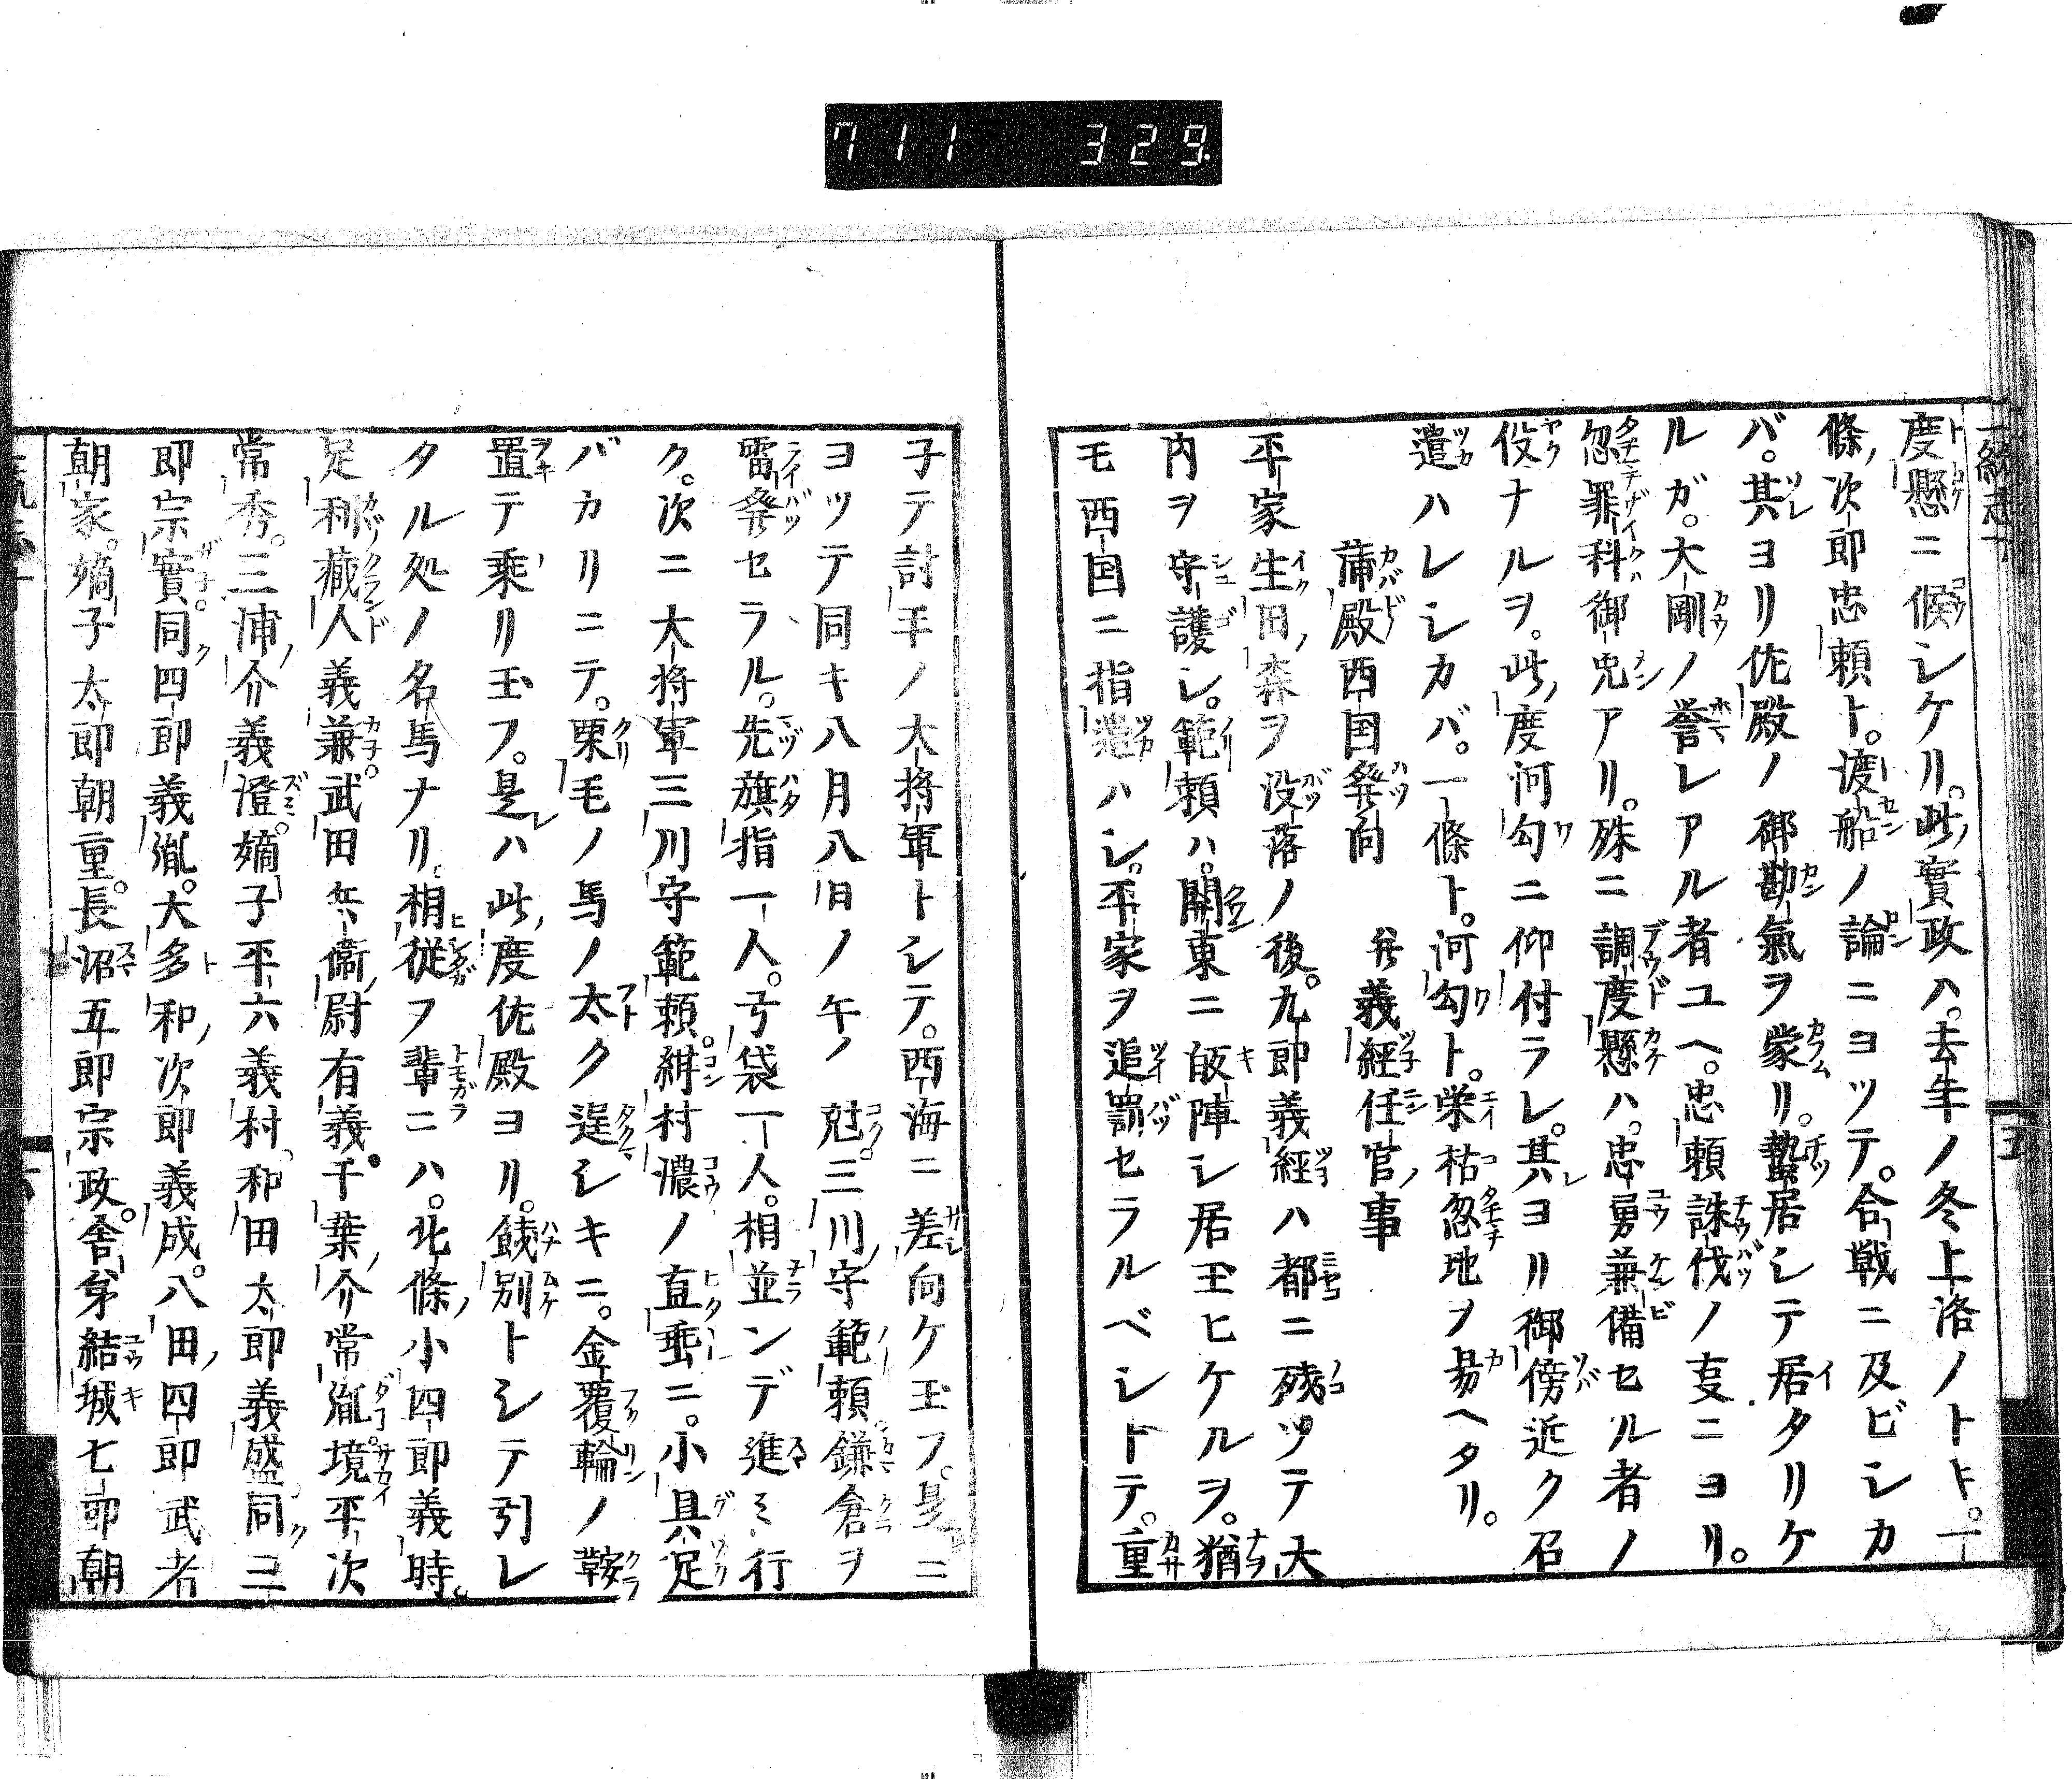 711 329
度懸ニ候シケリ。此實政ハ。去年ノ冬上洛ノトキ。一
條次郎忠頼ト。渡船ノ論ニヨツテ。合戦ニ及ビシカ
バ。其ヨリ佐殿ノ御勘氣ヲ蒙リ。蟄居シテ居タリケ
ルガ。大剛ノ誉レアル者ユヘ。忠頼誅伐ノ亊ニヨリ。
忽罪科御免アリ。殊ニ調度懸ハ。忠勇兼備セル者ノ
役ナルヲ。此度河勾ニ仰付ラレ。其ヨリ御傍近ク召
遣ハレシカバ。一條ト。河勾ト。栄枯忽地ヲ易ヘタリ。
蒲殿西国発向 并義經任官ノ事
平家生田ノ森ヲ没落ノ後。九郎義經ハ都ニ残ツテ大
内ヲ守護シ。範頼ハ。関東ニ皈陣シ居玉ヒケルヲ。猶
モ西国ニ指遣ハシ。平家ヲ追罰セラルベシトテ。重
子テ討手ノ大将軍トシテ。西海ニ差向ケ玉フ。是ニ
ヨツテ同キ八月八日ノ午ノ尅。三川守範頼鎌倉ヲ
雷発セラル。先旗指一人。弓袋一人。相並ンデ進ミ行
ク。次ニ大将軍三川守範頼。紺村濃ノ直垂ニ。小具足
バカリニテ。栗毛ノ馬ノ太ク逞シキニ。金覆輪ノ鞍
置テ乗リ玉フ。是ハ此度佐殿ヨリ。餞別トシテ引レ
タル処ノ名馬ナリ。相従ヲ輩ニハ。北條小四郎義時。
足利藏人義兼。武田兵衞尉有義。千葉介常胤。境平次
常秀。三浦介義澄。嫡子平六義村。和田太郎義盛。同三
郎宗實。同四郎義胤。大多和次郎義成。八田四郎武者
朝家。嫡子太郎朝重。長沼五郎宗政。舎弟結城七郎朝